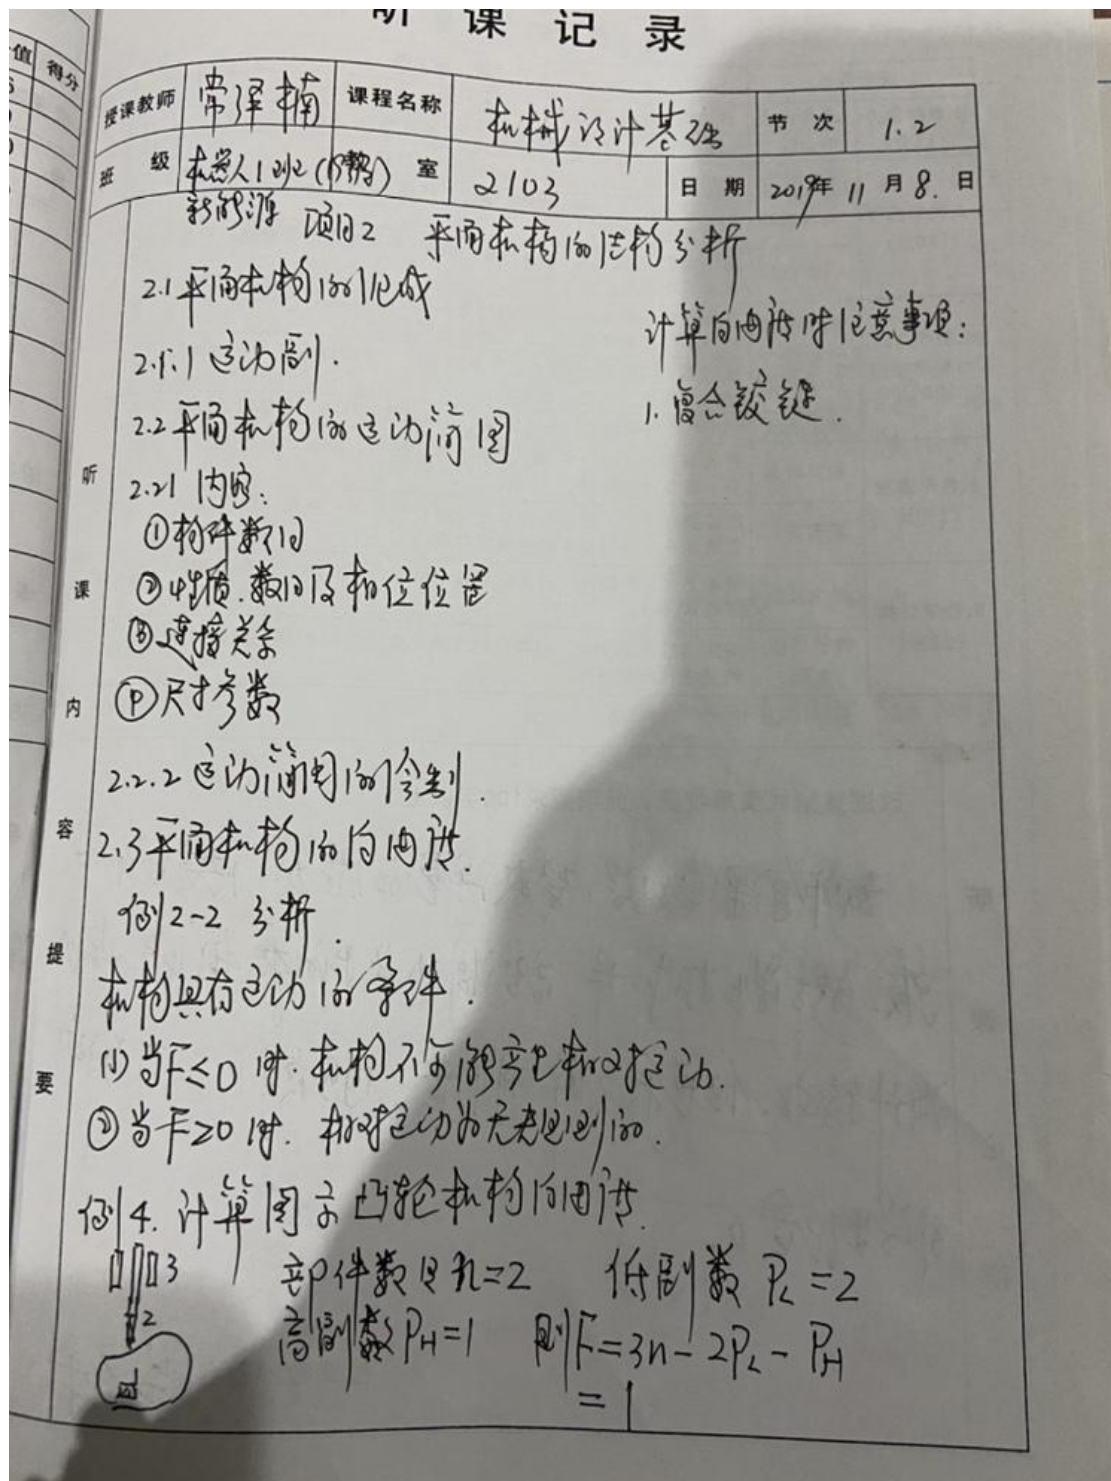 听课记录
值 得分
授课教师 常泽楠 课程名称 机械设计基础 节次 1.2
班级 机器人1班 教室 2103 日期 2019年11月8.日
新能源 项目2 平面机构的结构分析
2.1平面机构的组成
计算自由度时注意事项:
2.1.1运动副.
1.复合铰链.
2.2平面机构的运动简图
2.21 内容:
①构件数目
②性质.数目及相位位置
③连接关系
④尺寸参数
2.2.2运动简图的绘制.
2.3平面机构的自由度.
例2-2 分析.
机构具有运动的条件.
(1)当F≤0时.机构不可能产生相对运动.
②当F≥0时.相对运动为无规则的.
例4.计算图示凸轮机构自由度.
3
部件数目n=2 低副数PL=2
2
高副数PH=1 则F=3n-2PL-PH
1
=1
听课内容提要